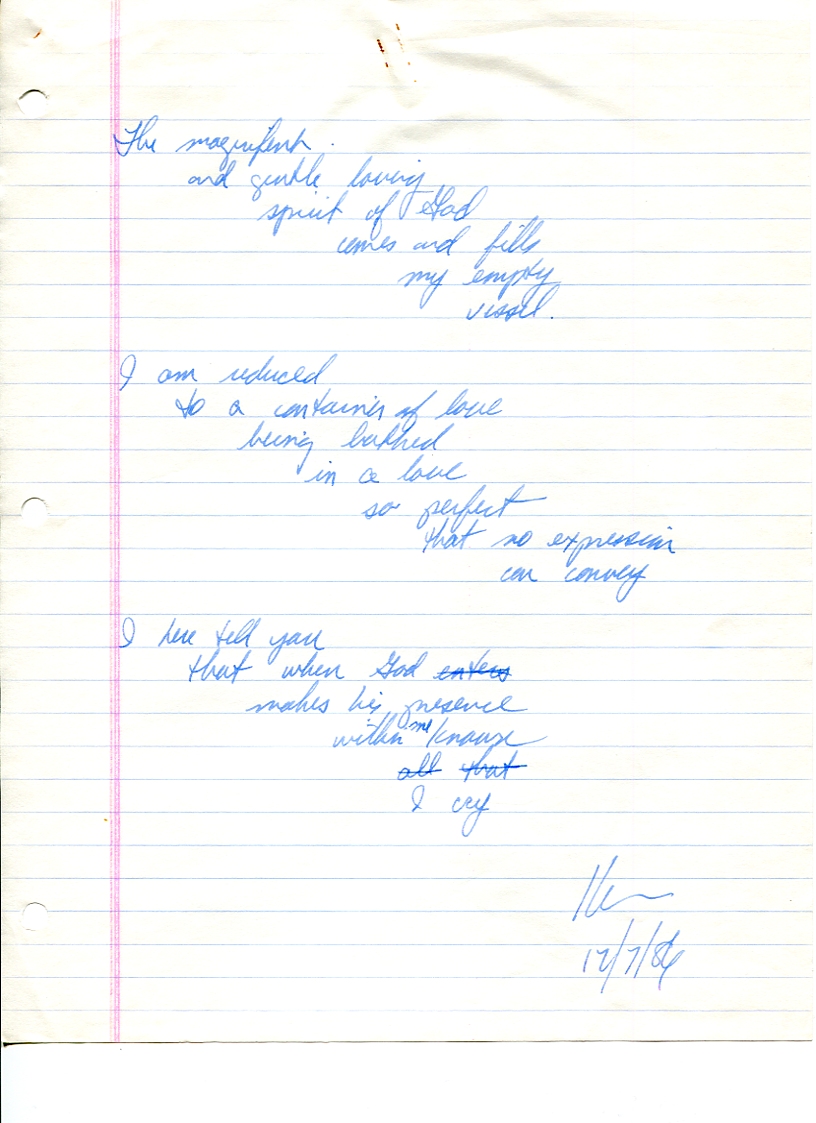 The magnificent
and gentle loving
spirit of God
comes and fills
my empty
vessel.
I am reduced
to a container of love
being bathed
in a love
so perfect
that no expression
can convey
I here tell you
that when God enters
makes his presence
within me known
all that
I cry
12/7/86